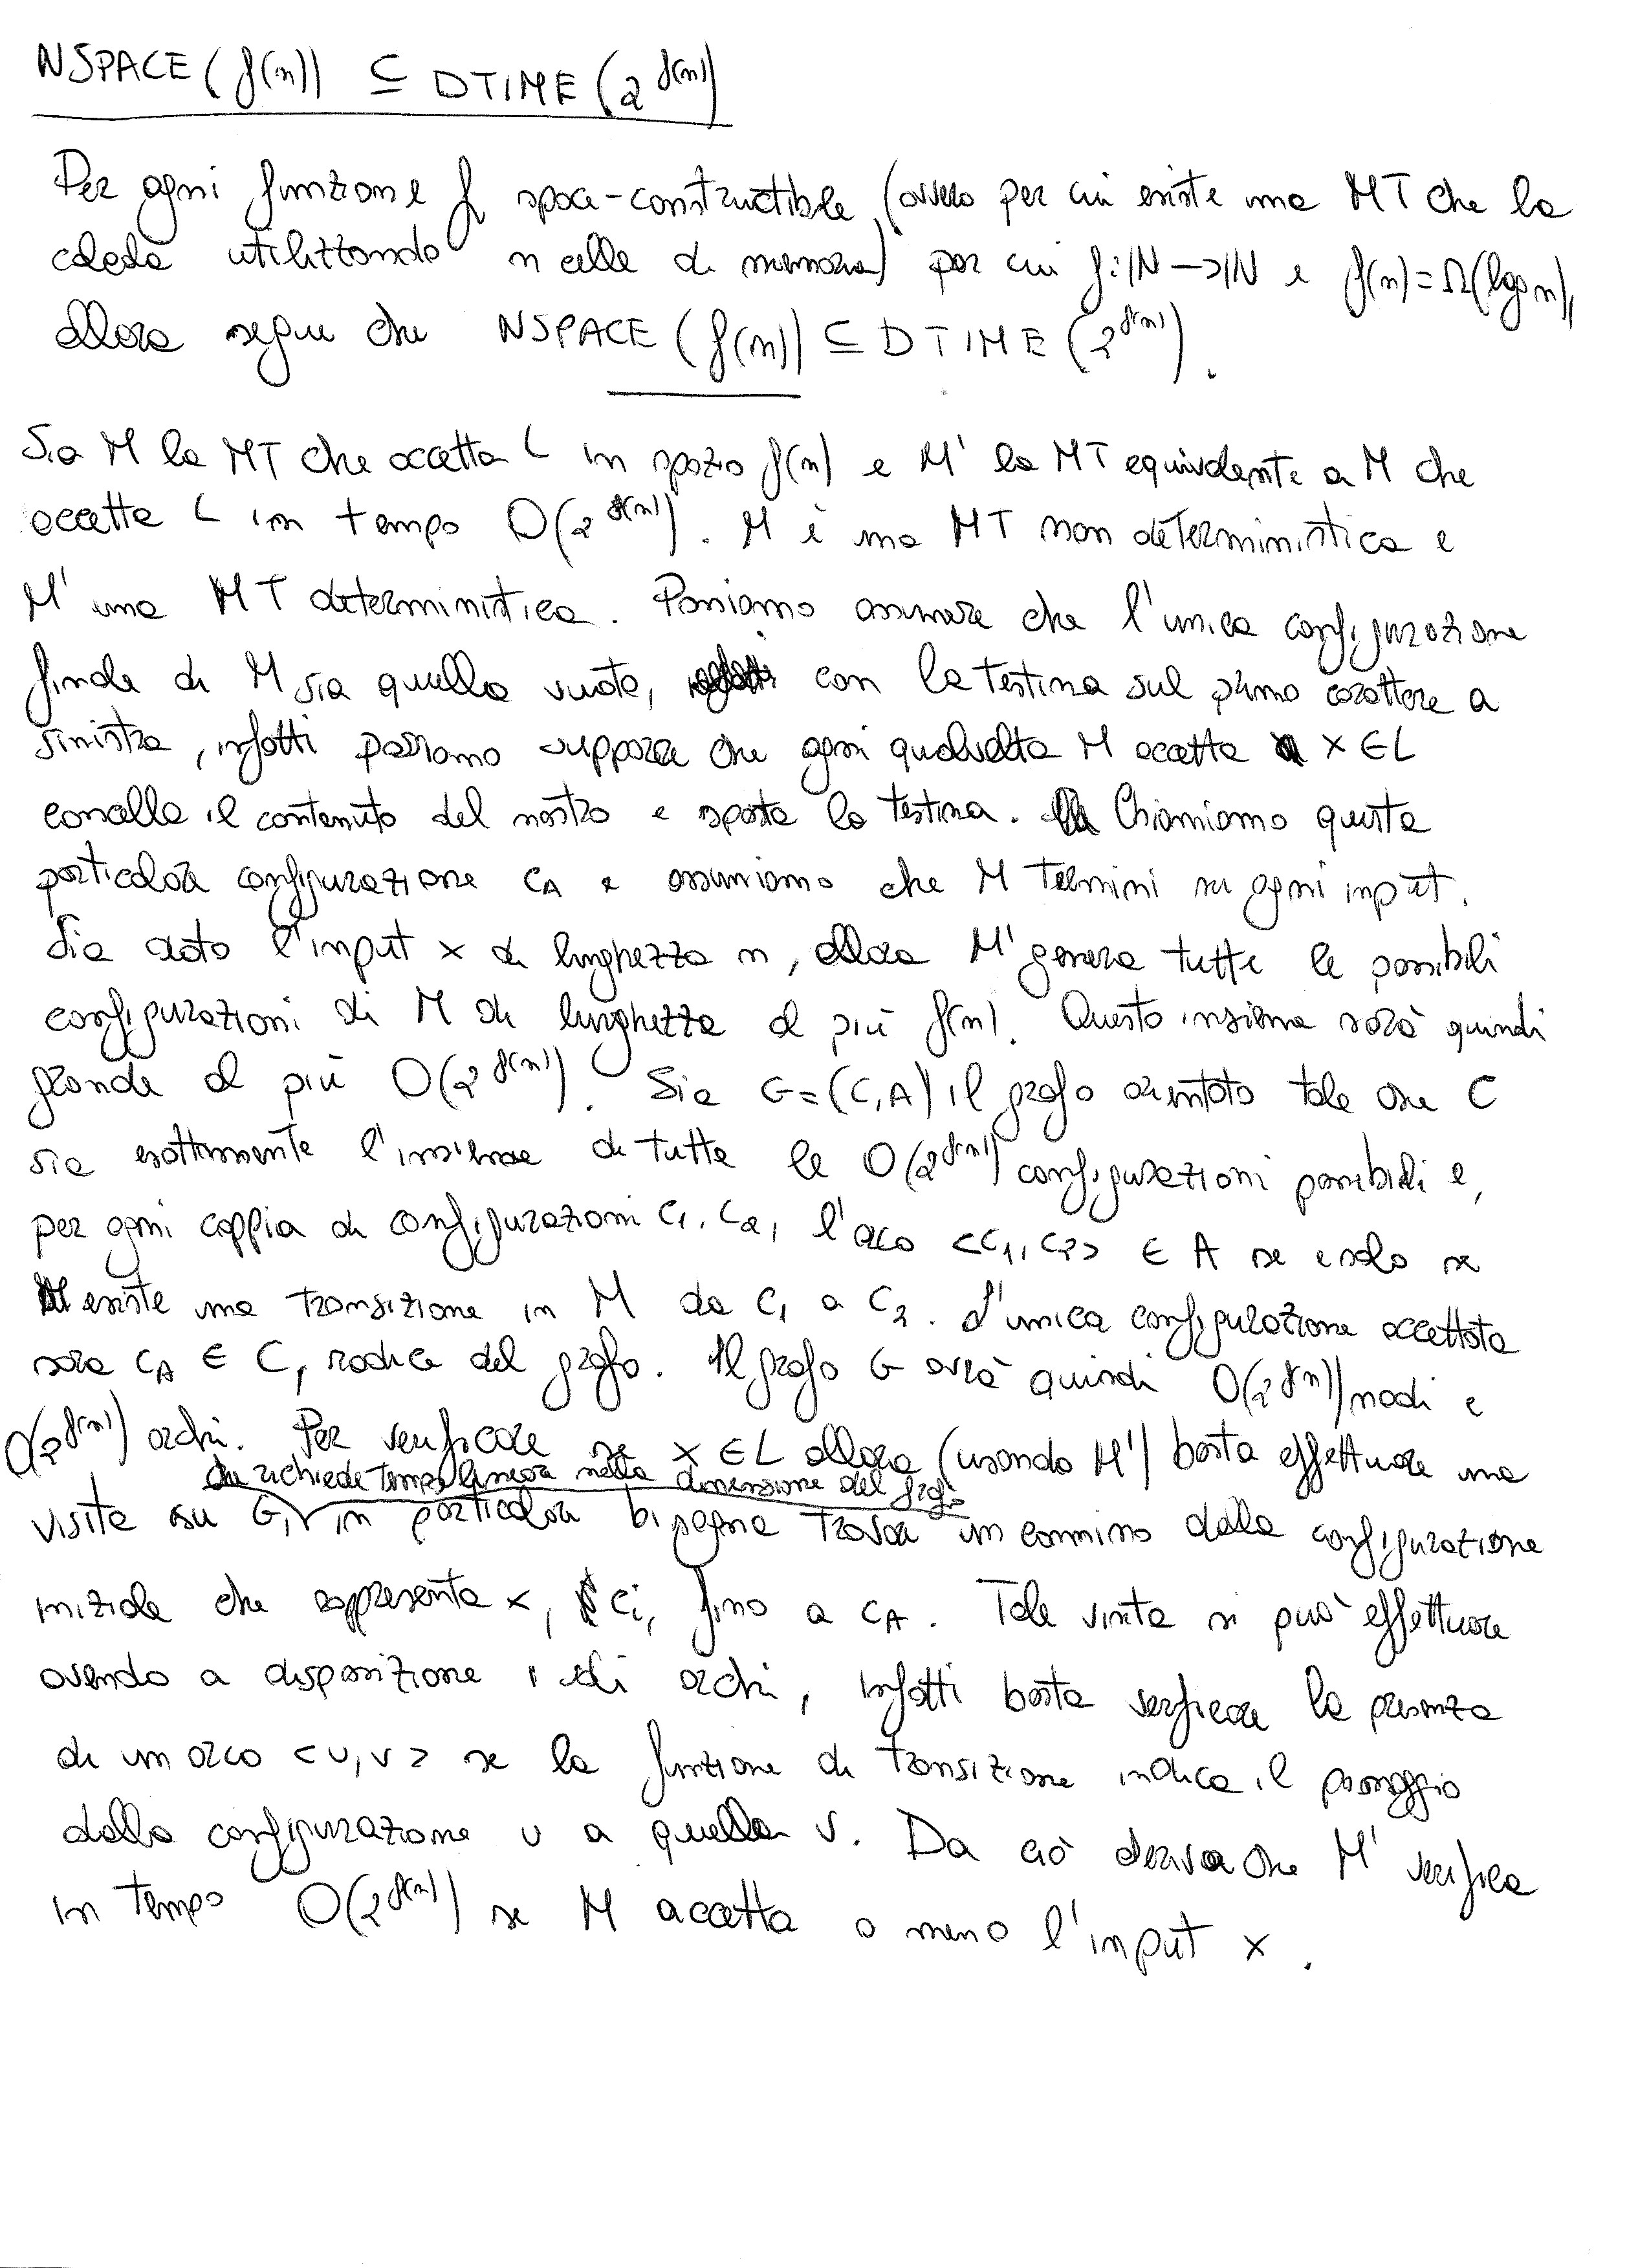 NSPACE(f(n)) ⊆ DTIME(2^f(n))
Per ogni funzione f space-constructible (ovvero per cui esiste una MT che la
calcola utilizzando n celle di memoria) per cui f:ℕ→ℕ e f(n)=Ω(log n),
allora segue che NSPACE(f(n)) ⊆ DTIME(2^f(n)).
Sia M la MT che accetta L in spazio f(n) e M' la MT equivalente a M che
accetta L in tempo O(2^f(n)). M è una MT non deterministica e
M' una MT deterministica. Possiamo assumere che l'unica configurazione
finale di M sia quella vuota, con la testina sul primo carattere a
sinistra, infatti possiamo supporre che ogni qualvolta M accetta x∈L
cancella il contenuto del nastro e sposta la testina. Chiamiamo questa
particolare configurazione c_A e assumiamo che M termini su ogni input.
Sia dato l'input x di lunghezza n, allora M' genera tutte le possibili
configurazioni di M di lunghezza al più f(n). Questo insieme sarà quindi
grande al più O(2^f(n)). Sia G=(C,A) il grafo orientato tale che C
sia esattamente l'insieme di tutte le O(2^f(n)) configurazioni possibili e,
per ogni coppia di configurazioni c₁, c₂, l'arco <c₁,c₂> ∈ A se e solo se
esiste una transizione in M da c₁ a c₂. L'unica configurazione accettata
sarà c_A ∈ C, radice del grafo. Il grafo G avrà quindi O(2^f(n)) nodi e
O(2^f(n)) archi. Per verificare se x∈L allora (usando M') basta effettuare una
che richiede tempo lineare nella dimensione del grafo
visita su G, in particolare bisogna trovare un cammino dalla configurazione
iniziale che rappresenta x, c_i, fino a c_A. Tale visita si può effettuare
avendo a disposizione i soli archi, infatti basta verificare la presenza
di un arco <u,v> se la funzione di transizione indica il passaggio
dalla configurazione u a quella v. Da ciò deriva che M' verifica
in tempo O(2^f(n)) se M accetta o meno l'input x.